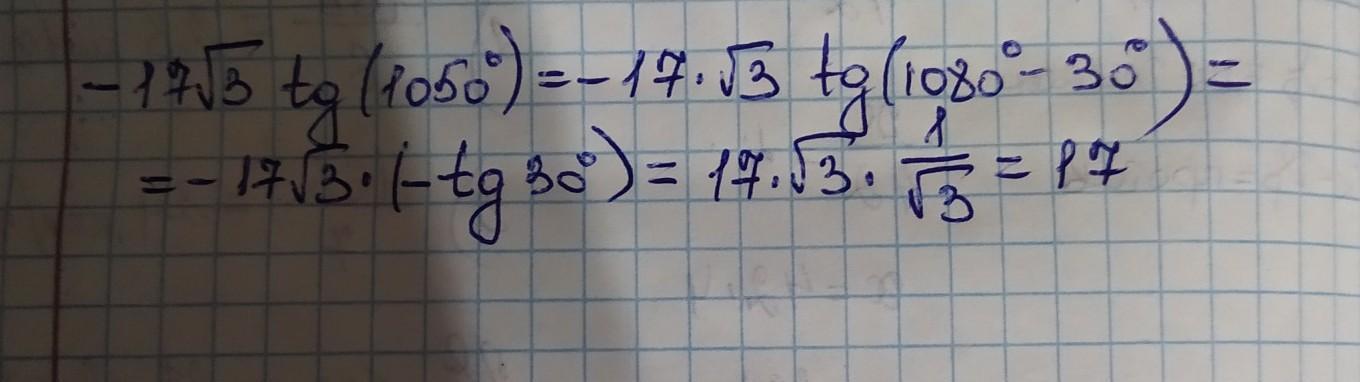 -17√3 tg(1050°)=-17·√3 tg(1080°-30°)=
=-17√3·(-tg30°)=17·√3·1/√3=17